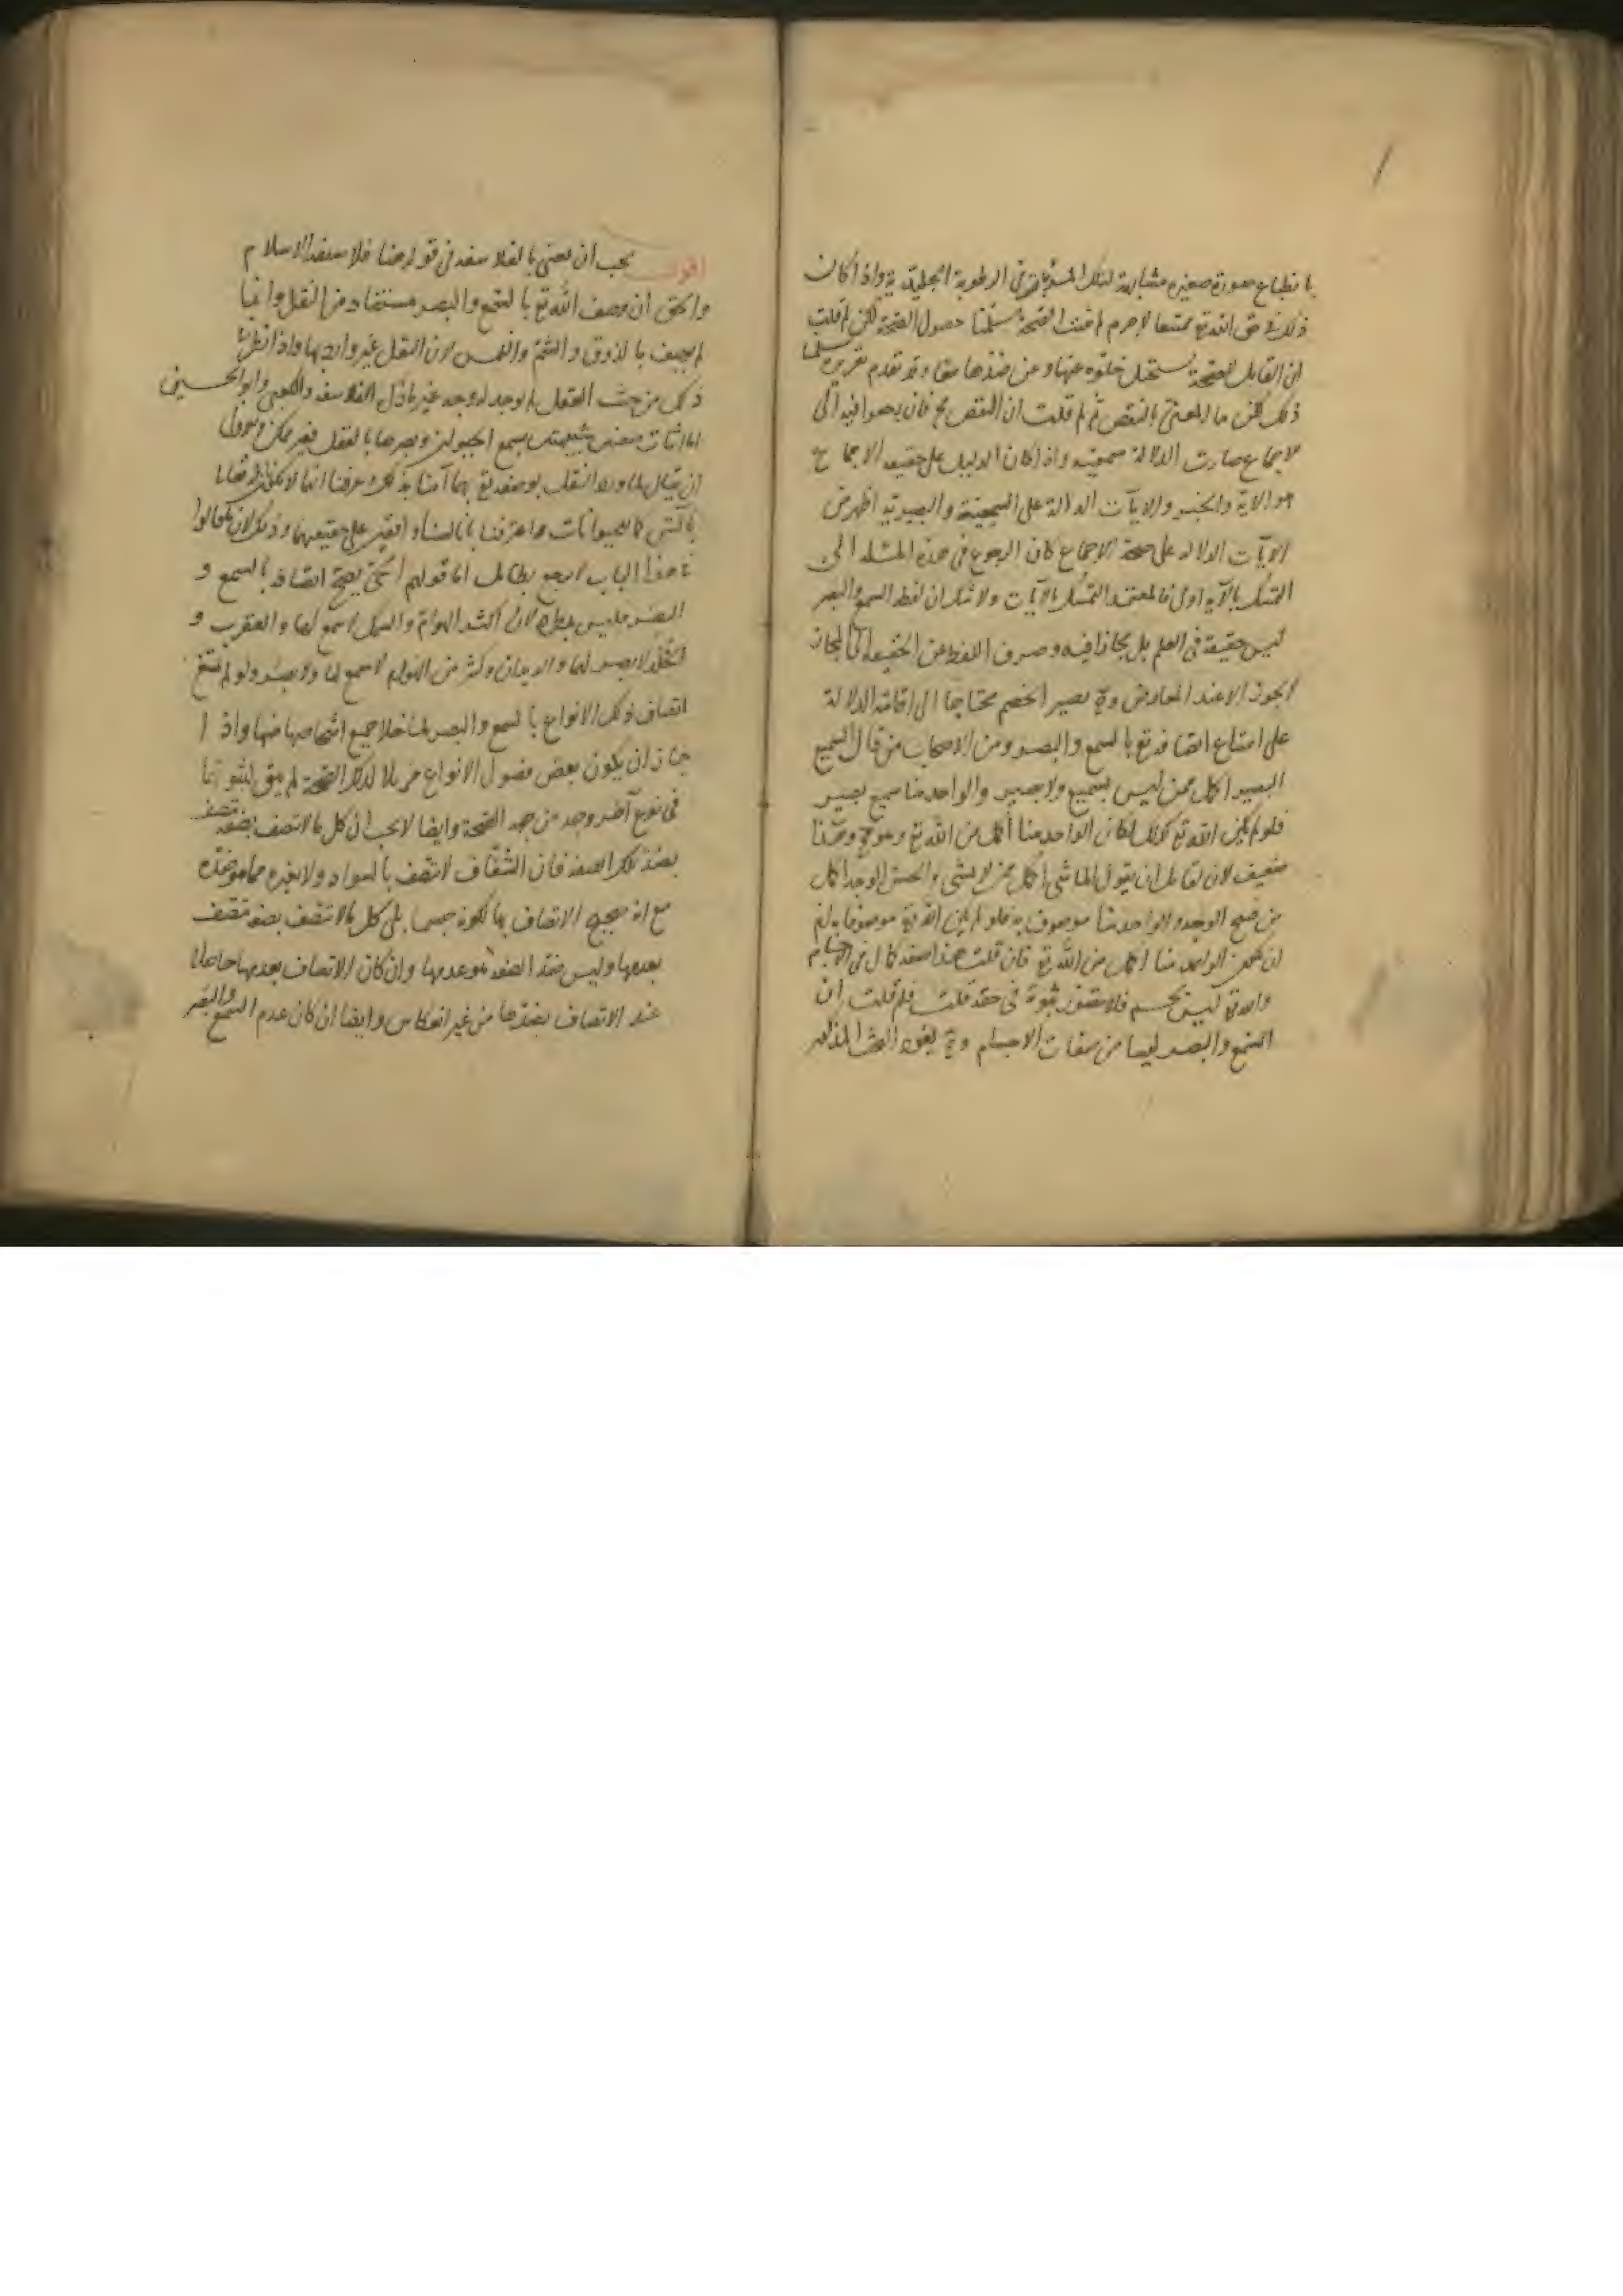 بانطباع صورة صغيرة مشابهة لتلك المرئيات في الرطوبة الجليدية واذا كان
ذلك في حق الله تع ممتنعا لا جرم لم تثبت الصحة سلمنا حصول الصحة لكن لم قلت
ان القابل للصحة يستحيل خلوه عنها وعن ضدها معا وقد تقدم تقريره سلمنا
ذلك لكن ما المعني بالنقص ثم لم قلت ان النقص مح فان رجعوا فيه الى
الاجماع صارت الدلالة سمعية واذا كان الدليل على حقية الاجماع
هو الاية والخبر والايات الدالة على السميعية والبصيرية اظهر من
الايات الدالة على صحة الاجماع كان الرجوع في هذه المسئلة الى
التمسك بالاية اولى فالمعتمد التمسك بالايات ولا شك ان لفظ السمع والبصر
ليس حقيقة في العلم بل مجازا فيه وصرف اللفظ من الحقيقة الى المجاز
لا يجوز الا عند المعارض وح يصير الخصم محتاجا الى اقامة الدلالة
على امتناع اتصافه تع بالسمع والبصر ومن الاصحاب من قال السميع
البصير اكمل ممن ليس بسميع ولا بصير والواحد منا سميع بصير
فلو لم يكن الله تع كذلك لكان الواحد منا اكمل من الله تع وهو مح وهذا
ضعيف لان لقائل ان يقول الماشي اكمل ممن لا يمشي والحسن الوجه اكمل
من قبيح الوجه والواحد منا موصوف به فلو لم يكن الله تع موصوفا به لزم
ان يكون الواحد منا اكمل من الله تع فان قلت هذا صفة كمال في الاجسام
والله تع ليس بجسم فلا يتصور ثبوته في حقه قلت فلم قلت ان
السمع والبصر ليسا من صفات الاجسام وح يعود البحث المذكور
اقول يجب ان يعنى بالفلاسفة في قوله هنا فلاسفة الاسلام
والحق ان وصف الله تع بالسمع والبصر مستفاد من النقل وانما
لم يوصف بالذوق والشم واللمس لان النقل غير وارد بها واذا نظر في
ذلك من حيث العقل لم يوجد له وجه غير ما ذكره الفلاسفة والكعبي وابو الحسين
اما اثبات صفتين شبيهتين بسمع الحيوان وبصرها بالعقل فغير ممكن والاولى
ان يقال لما ورد النقل بوصفه تع بهما آمنا بذلك وعرفنا انهما لا يكونان له تعالى
بآلتين كما للحيوانات واعترفنا باننا لسنا واقفين على حقيقتهما وذلك لان ما قالوا
في هذا الباب لا يرجع بطائل اما قولهم الحي يصح اتصافه بالسمع و
البصر فليس بمطرد لان اكثر الهوام والسمك لا سمع لها والعقرب و
الخلد لا بصر لهما والديدان وكثير من الهوام لا سمع لها ولا بصر ولو لم يمتنع
اتصاف ذلك الانواع بالسمع والبصر لما خلا جميع اشخاصها منها واذا
جاز ان يكون بعض فصول الانواع مزيلا لتلك الصحة لم يبق لثبوتها
في نوع آخر وجه من جهة الصحة وايضا لا يجب ان كل ما لا يتصف بصفة يتصف
بضد تلك الصفة فان الشفاف لا يتصف بالسواد ولا بغيره مما هو ضده
مع انه يصح الاتصاف بها لكونه جسما بلى كل ما لا يتصف بصفة يتصف
بعدمها وليس ضد الصفة هو عدمها وان كان الاتصاف بعدمها حاصلا
عند الاتصاف بضدها من غير انعكاس وايضا ان كان عدم السمع والبصر